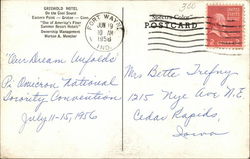 GRISWOLD HOTEL
On the Gem Sound
Eastern Point — Groton — Conn
"One of America's Finer
Summer Resort Hotels"
Ownership Management
FORT WAYNE
JUN 19
10 AM
1956
IND.
"Spectra-Color"
POSTCARD
2
"Our Dream Unfolds"
Pi Omicron National
Sorority Convention
July 11-15, 1956
Mrs Bette Trefny
1215 Nye Ave N.E.
Cedar Rapids,
Iowa